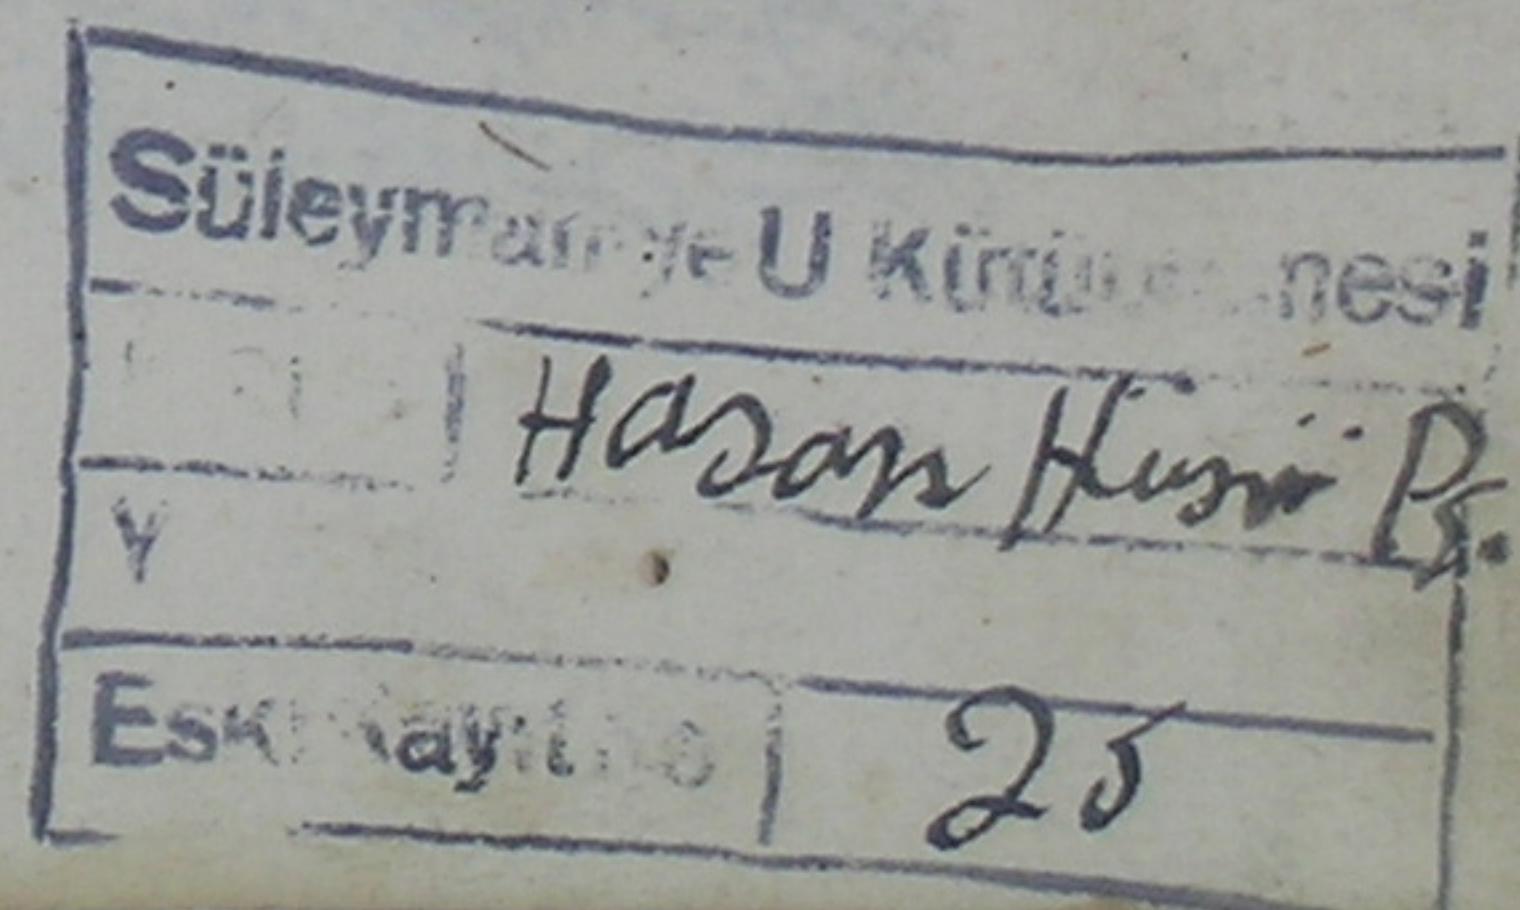 Süleymaniye U Kütüphanesi
Hasan Hüsnü Pş.
Y
Eski Kayıt No 25